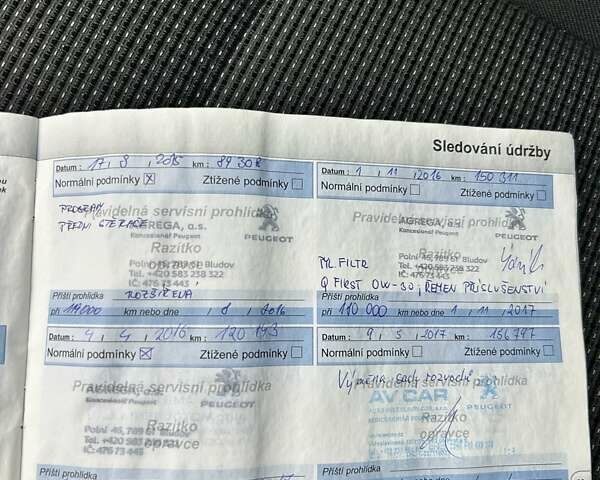 Sledování údržby
Datum : 17 , 8 , 2015 km : 89 308
Normální podmínky X Ztížené podmínky
PROGRAM
PŘEDNÍ STĚRAČE
Pravidelná servisní prohlídka
AGREGA, a.s.
Koncesionář Peugeot
PEUGEOT
Razítko
opravce
Polní 45, 789 61 Bludov
Tel. +420 583 238 322
IČ: 476 73 445
Příští prohlídka ROZŠÍŘENÁ
při km nebo dne , 8 , 2016
Datum : 1 , 11 , 2016 km : 150 311
Normální podmínky Ztížené podmínky
Pravidelná servisní prohlídka
AGREGA, a.s.
Koncesionář Peugeot
PEUGEOT
Razítko
opravce
Polní 45, 789 61 Bludov
Tel. +420 583 238 322
IČ: 476 73 445
FILTR
Q FIRST 0W-30, ŘEMEN PŘÍSLUŠENSTVÍ
Příští prohlídka
při 000 km nebo dne 1 , 11 , 2017
Datum : 4 , 4 , 2016 km : 120 193
Normální podmínky X Ztížené podmínky
Pravidelná servisní prohlídka
AGREGA, a.s.
Koncesionář Peugeot
PEUGEOT
Razítko
opravce
Polní 45, 789 61 Bludov
Tel. +420 583 238 322
IČ: 476 73 445
Příští prohlídka
Datum : 9 , 5 , 2017 km : 156 797
Normální podmínky Ztížené podmínky
Výměna sady rozvodů
Pravidelná servisní prohlídka
AV CAR
PEUGEOT
Razítko
opravce
Příští prohlídka